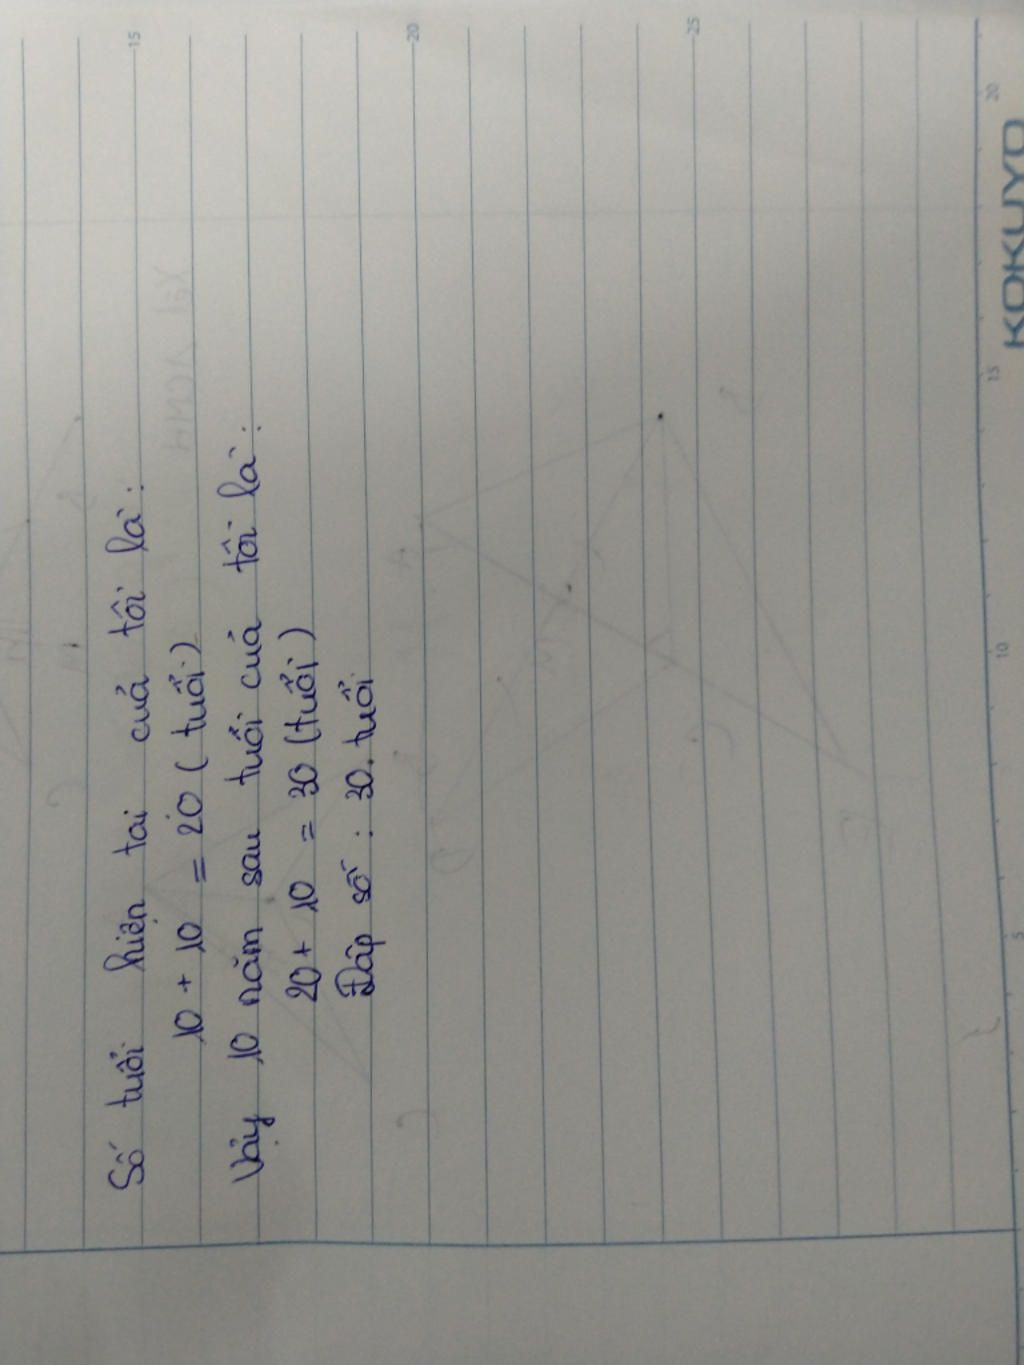 Số tuổi hiện tai của tôi là :
10 + 10 = 20 ( tuổi )
Vậy 10 năm sau tuổi của tôi là :
20 + 10 = 30 (tuổi)
Đáp số : 30. tuổi
15
20
25
5
10
15
20
KOKUYO